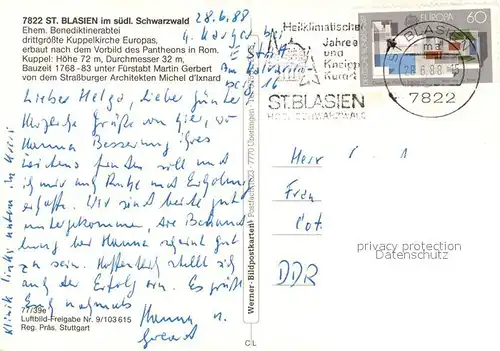 7822 ST. BLASIEN im südl. Schwarzwald
Ehem. Benediktinerabtei
drittgrößte Kuppelkirche Europas,
erbaut nach dem Vorbild des Pantheons in Rom.
Kuppel: Höhe 72 m, Durchmesser 32 m,
Bauzeit 1768-83 unter Fürstabt Martin Gerbert
von dem Straßburger Architekten Michel d'Ixnard
28.6.88
Lieber Helga, Lieber Günter
Herzliche Grüße von hier, wo
Hanna Besserung ihres
Leidens finden soll und
ich mir auch Ruhe und Erholung
erhoffe. Wir sind beide gut
untergekommen, die Behand
lung bei Hanna scheint gut
zu sein. Hoffentlich stellt sich
auch der Erfolg ein. Es grüßt
Euch nochmals
Hanna u.
Klinik links unten im Kreis
77/39e
Luftbild-Freigabe Nr. 9/103 615
Reg. Präs. Stuttgart
Werner-Bildpostkarten
C L
Heilklimatischer
Jahre
und
Kneipp
Kurort
ST. BLASIEN
HOCHSCHWARZWALD
EUROPA
60
ST BLASIEN
28.6.88
7822
Herr
Frau
DDR
privacy protection
Datenschutz